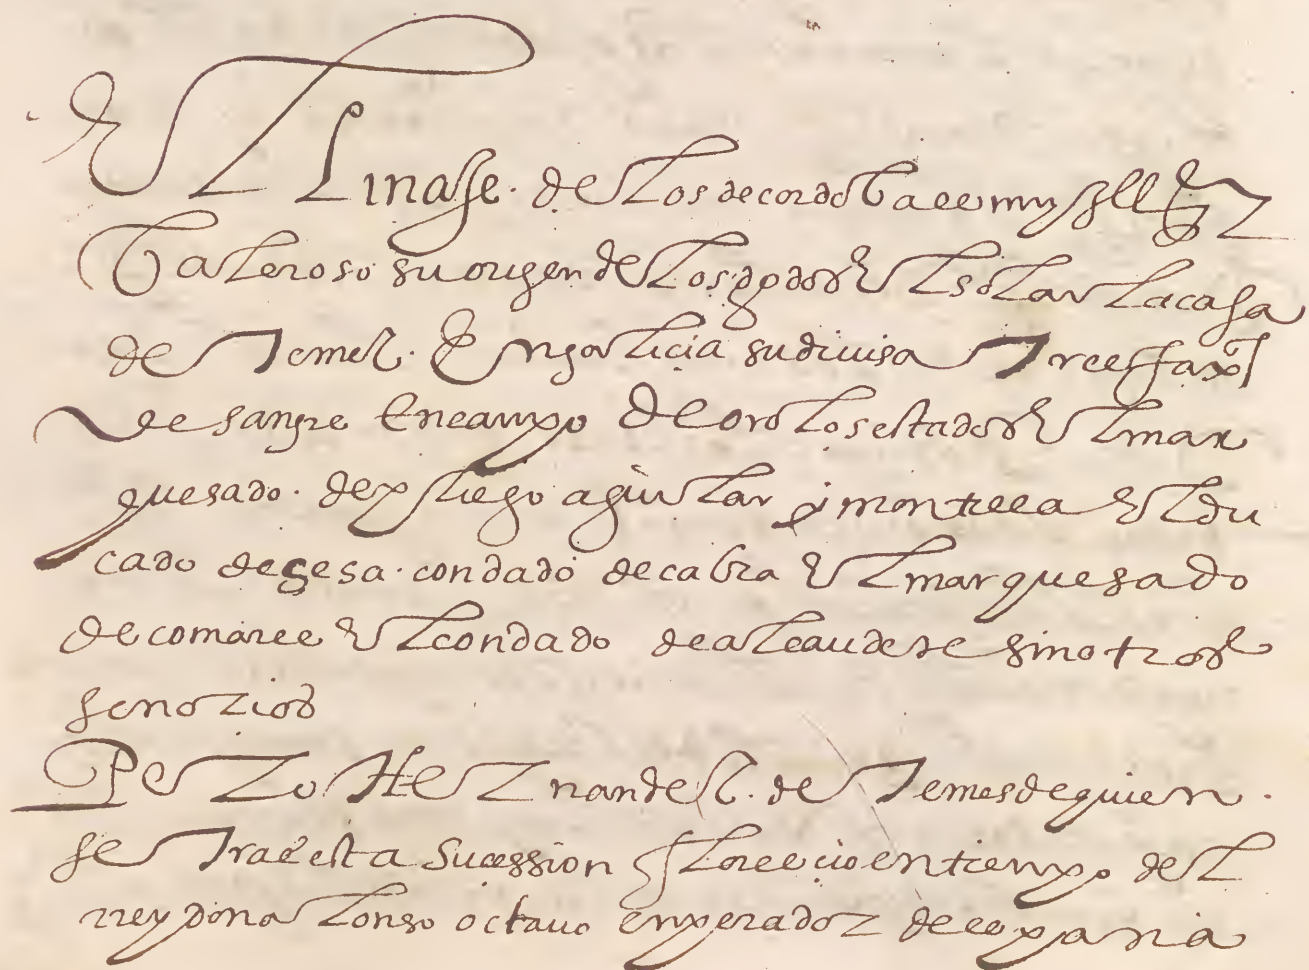 El Linaje. de los de cordoba es muy Ill[e] y
Valeroso su origen de los godos el solar la casa
de Temez. En galicia su diuisa Tres faxas
de sangre En campo de oro los estados el mar
quesado. de pliego aguilar y montilla el du
cado de sesa. condado de cabra el marquesado
de comares el condado de alcaudete sin otros
senorios
Pero Hernandez. de Temes de quien.
se Trae esta sucession florecio en tiempo del
rrey don alonso octauo emperador de espana